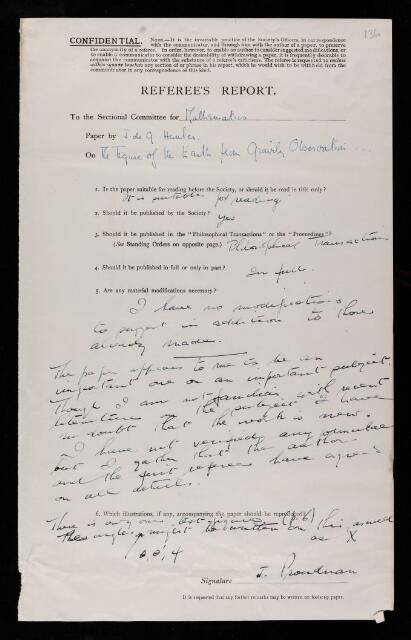 136
CONFIDENTIAL.
NOTE.—It is the invariable practice of the Society's Officers, in correspondence
with the communicator, and through him with the author of a paper, to preserve
the anonymity of a referee. In order, however, to enable an author to consider suggested modifications, or
to enable a communicator to consider the desirability of withdrawing a paper, it is frequently desirable to
acquaint the communicator with the substance of a referee's criticisms. The referee is requested to enclose
within square brackets any section of or phrase in his report, which he would wish to be withheld from the
communicator in any correspondence of this kind.
REFEREE'S REPORT.
To the Sectional Committee for Mathematics
Paper by J. de G. Hunter.
On The Figure of the Earth from Gravity Observations....
1. Is the paper suitable for reading before the Society, or should it be read in title only?
It is suitable for reading
2. Should it be published by the Society? Yes
3. Should it be published in the "Philosophical Transactions" or the "Proceedings"?
(See Standing Orders on opposite page.) Philosophical Transactions
4. Should it be published in full or only in part? In full.
5. Are any material modifications necessary?
I have no modifications
to suggest in addition to those
already made.
The paper appears to me to be an
important one on an important subject.
Though I am not familiar with recent
literature on the subject I have
no doubt that the work is new.
I have not verified any formulae
but I gather that the author
and the first referee have agreed
on all details.
6. Which illustrations, if any, accompanying the paper should be reproduced?
There is only one (p.6)
might be written on this as well
as X
J. Proudman
Signature
It is requested that any further remarks may be written on foolscap paper.